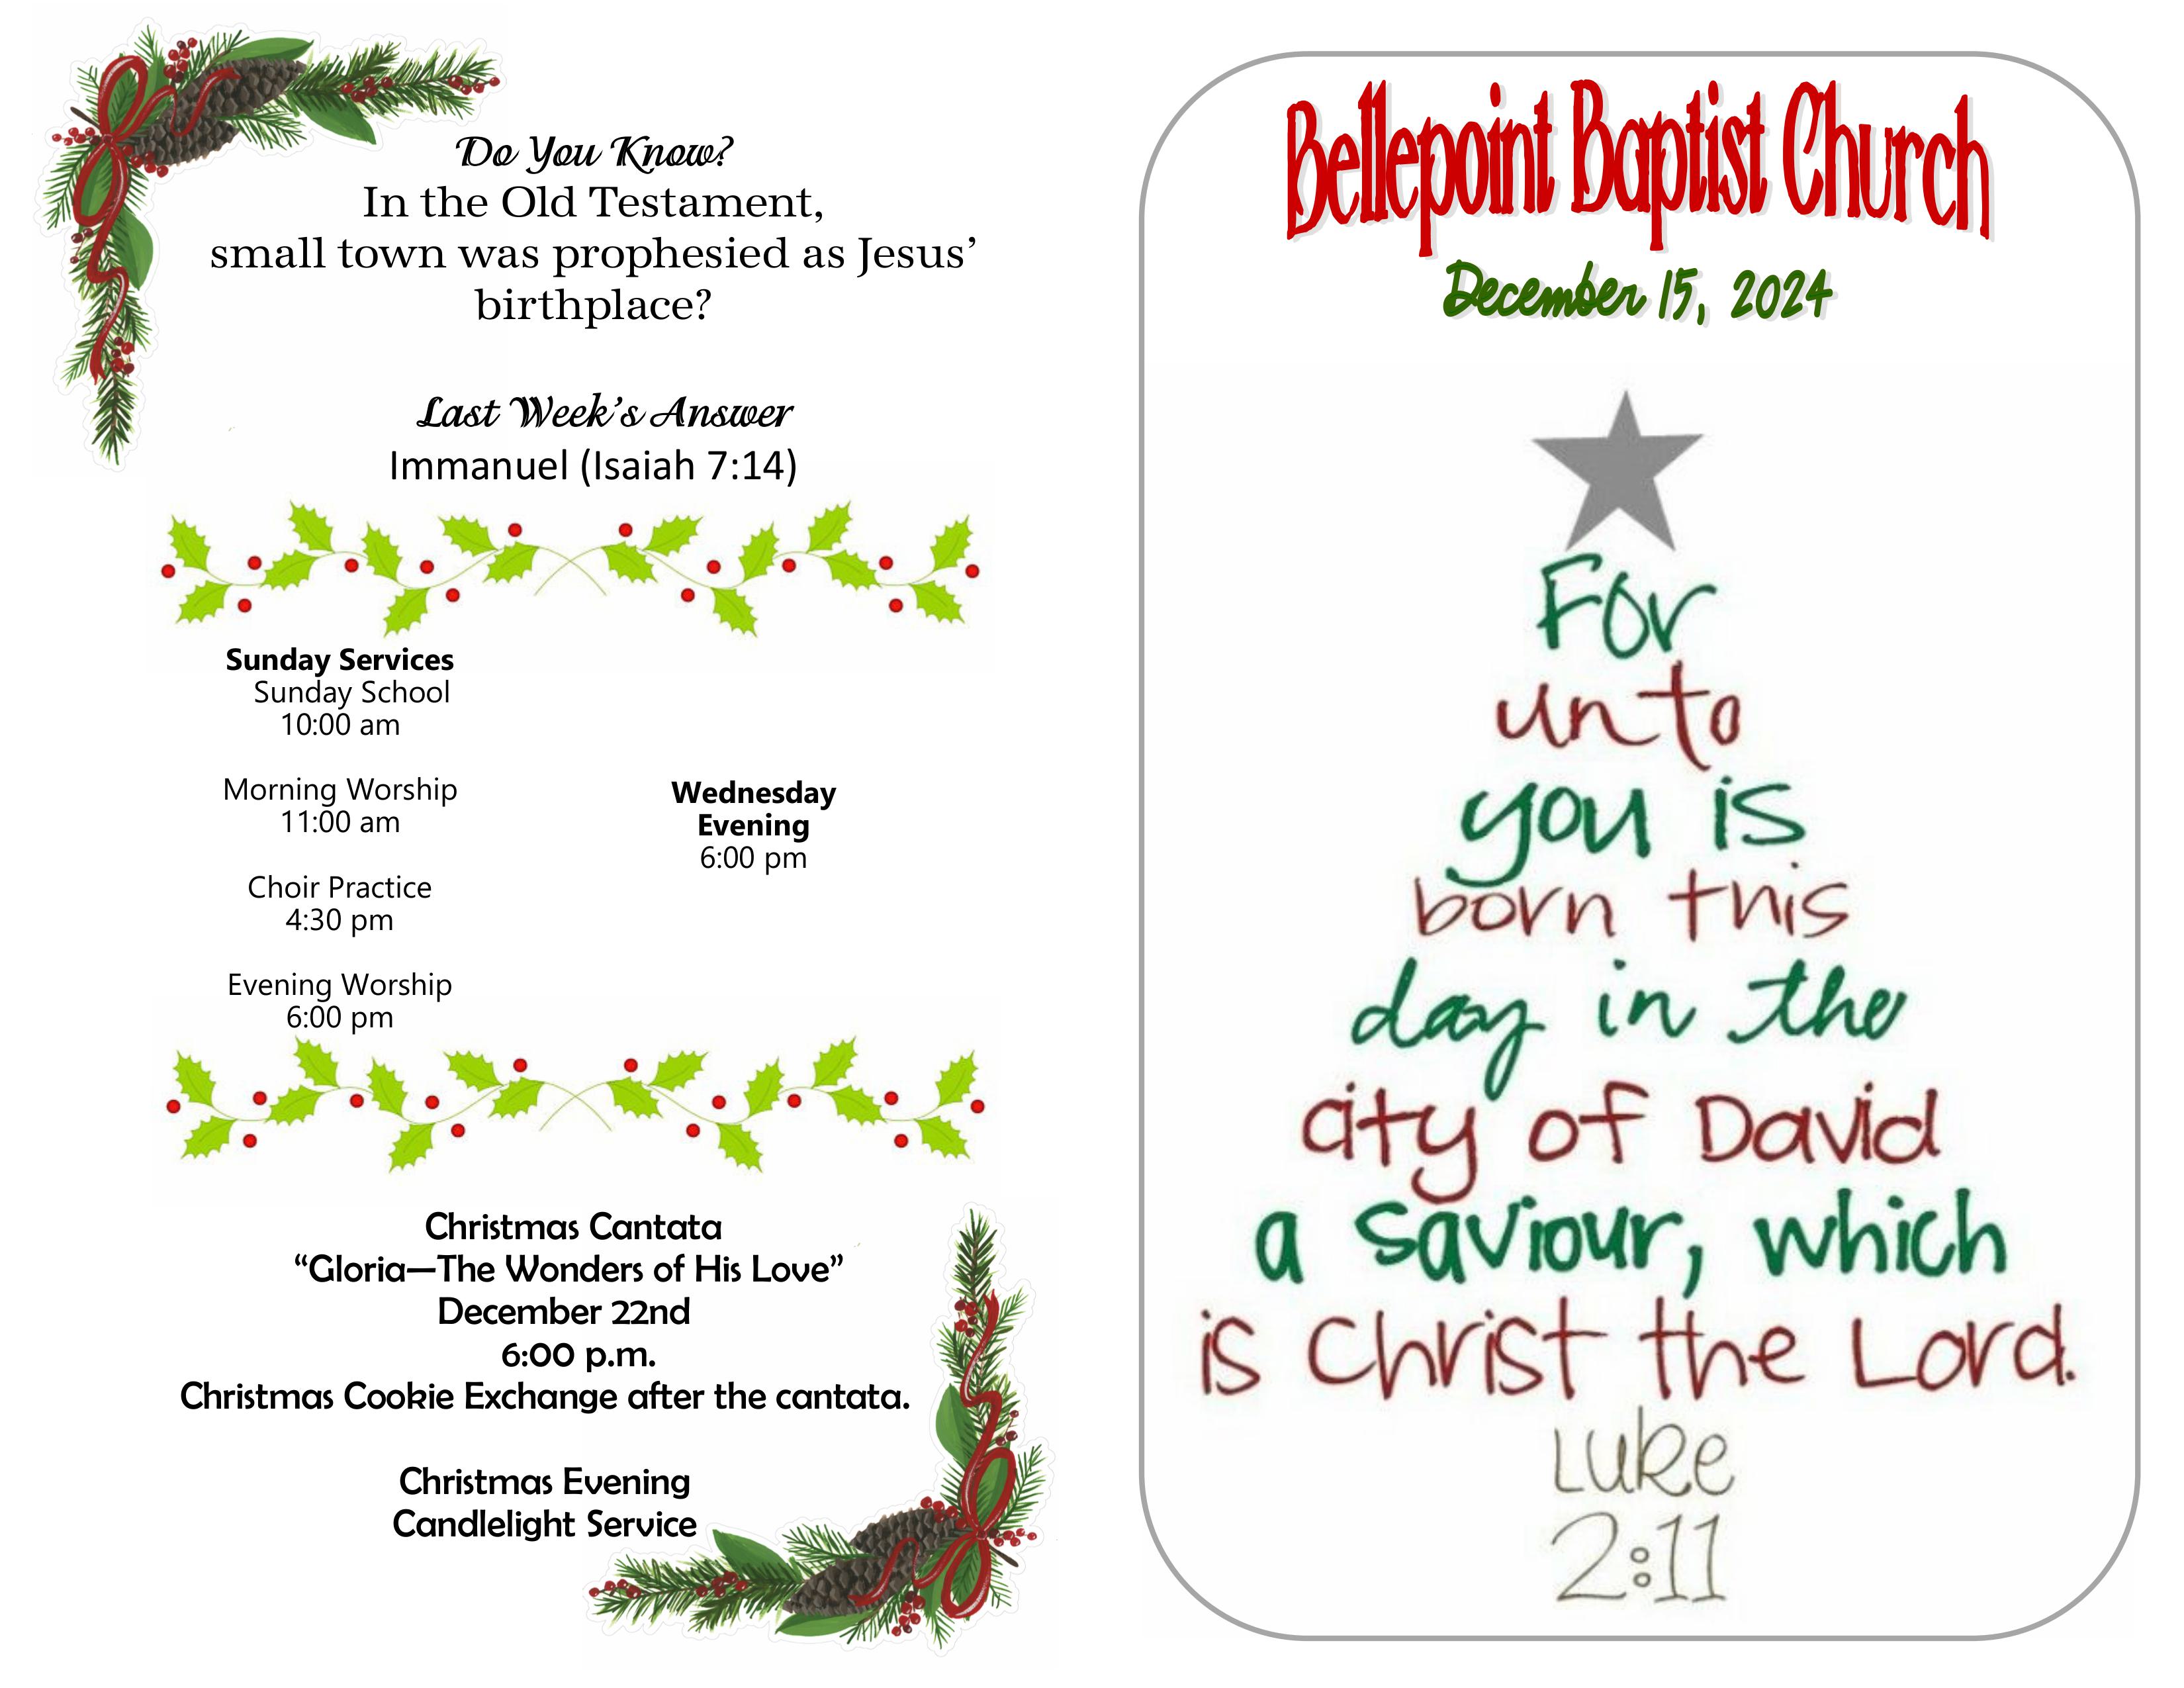 Do You Know?
In the Old Testament,
small town was prophesied as Jesus’
birthplace?
Last Week’s Answer
Immanuel (Isaiah 7:14)
Sunday Services
Sunday School
10:00 am
Morning Worship
11:00 am
Choir Practice
4:30 pm
Evening Worship
6:00 pm
Wednesday
Evening
6:00 pm
Christmas Cantata
“Gloria—The Wonders of His Love”
December 22nd
6:00 p.m.
Christmas Cookie Exchange after the cantata.
Christmas Evening
Candlelight Service
Bellepoint Baptist Church
December 15, 2024
For
unto
you is
born this
day in the
city of David
a saviour, which
is Christ the Lord.
Luke
2:11